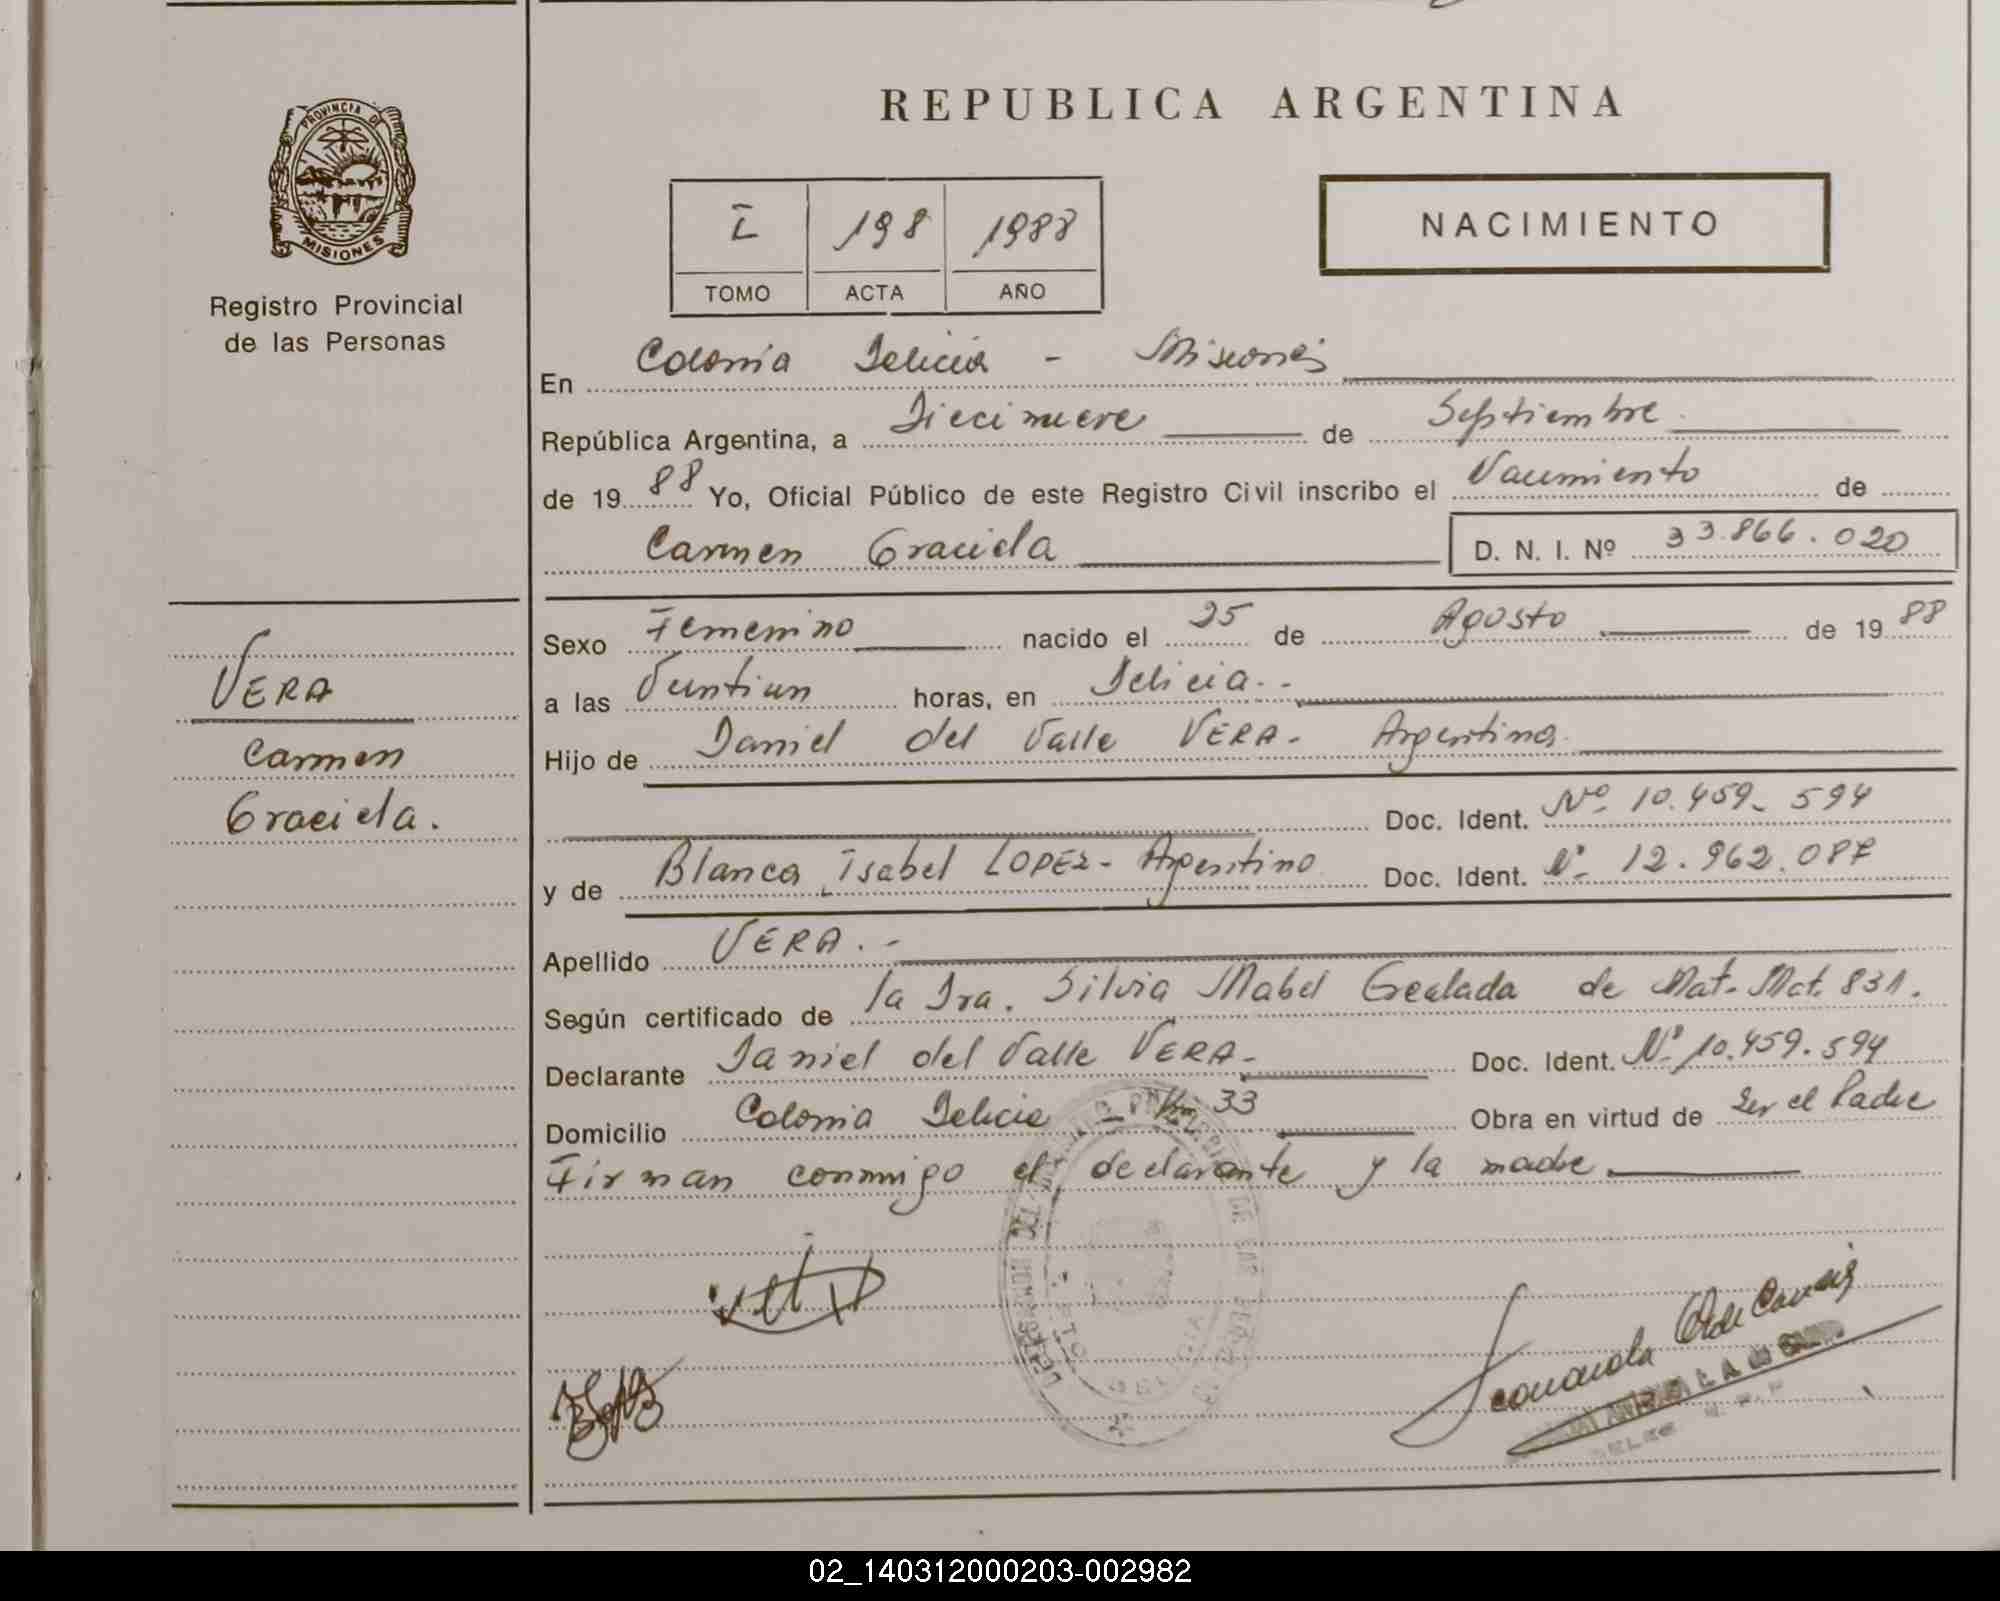 PROVINCIA DE
MISIONES
Registro Provincial
de las Personas
VERA
Carmen
Graciela.
REPUBLICA ARGENTINA
I 198 1988
TOMO ACTA AÑO
NACIMIENTO
En Colonia Delicia - Misiones
República Argentina, a Diecinueve de Septiembre
de 1988 Yo, Oficial Público de este Registro Civil inscribo el Nacimiento de
Carmen Graciela D. N. I. Nº 33.866.020
Sexo Femenino nacido el 25 de Agosto de 1988
a las Veintiun horas, en Delicia.-
Hijo de Daniel del Valle VERA - Argentina
Doc. Ident. Nº 10.459.594
y de Blanca Isabel LOPEZ - Argentino Doc. Ident. Nº 12.962.087
Apellido VERA.-
Según certificado de la Dra. Silvia Mabel de Mat. Mat. 831.
Declarante Daniel del Valle VERA - Doc. Ident. Nº 10.459.594
Domicilio Colonia Delicia - Km 33 Obra en virtud de Ser el Padre
Firman conmigo el declarante y la madre
DELICIA
02_140312000203-002982